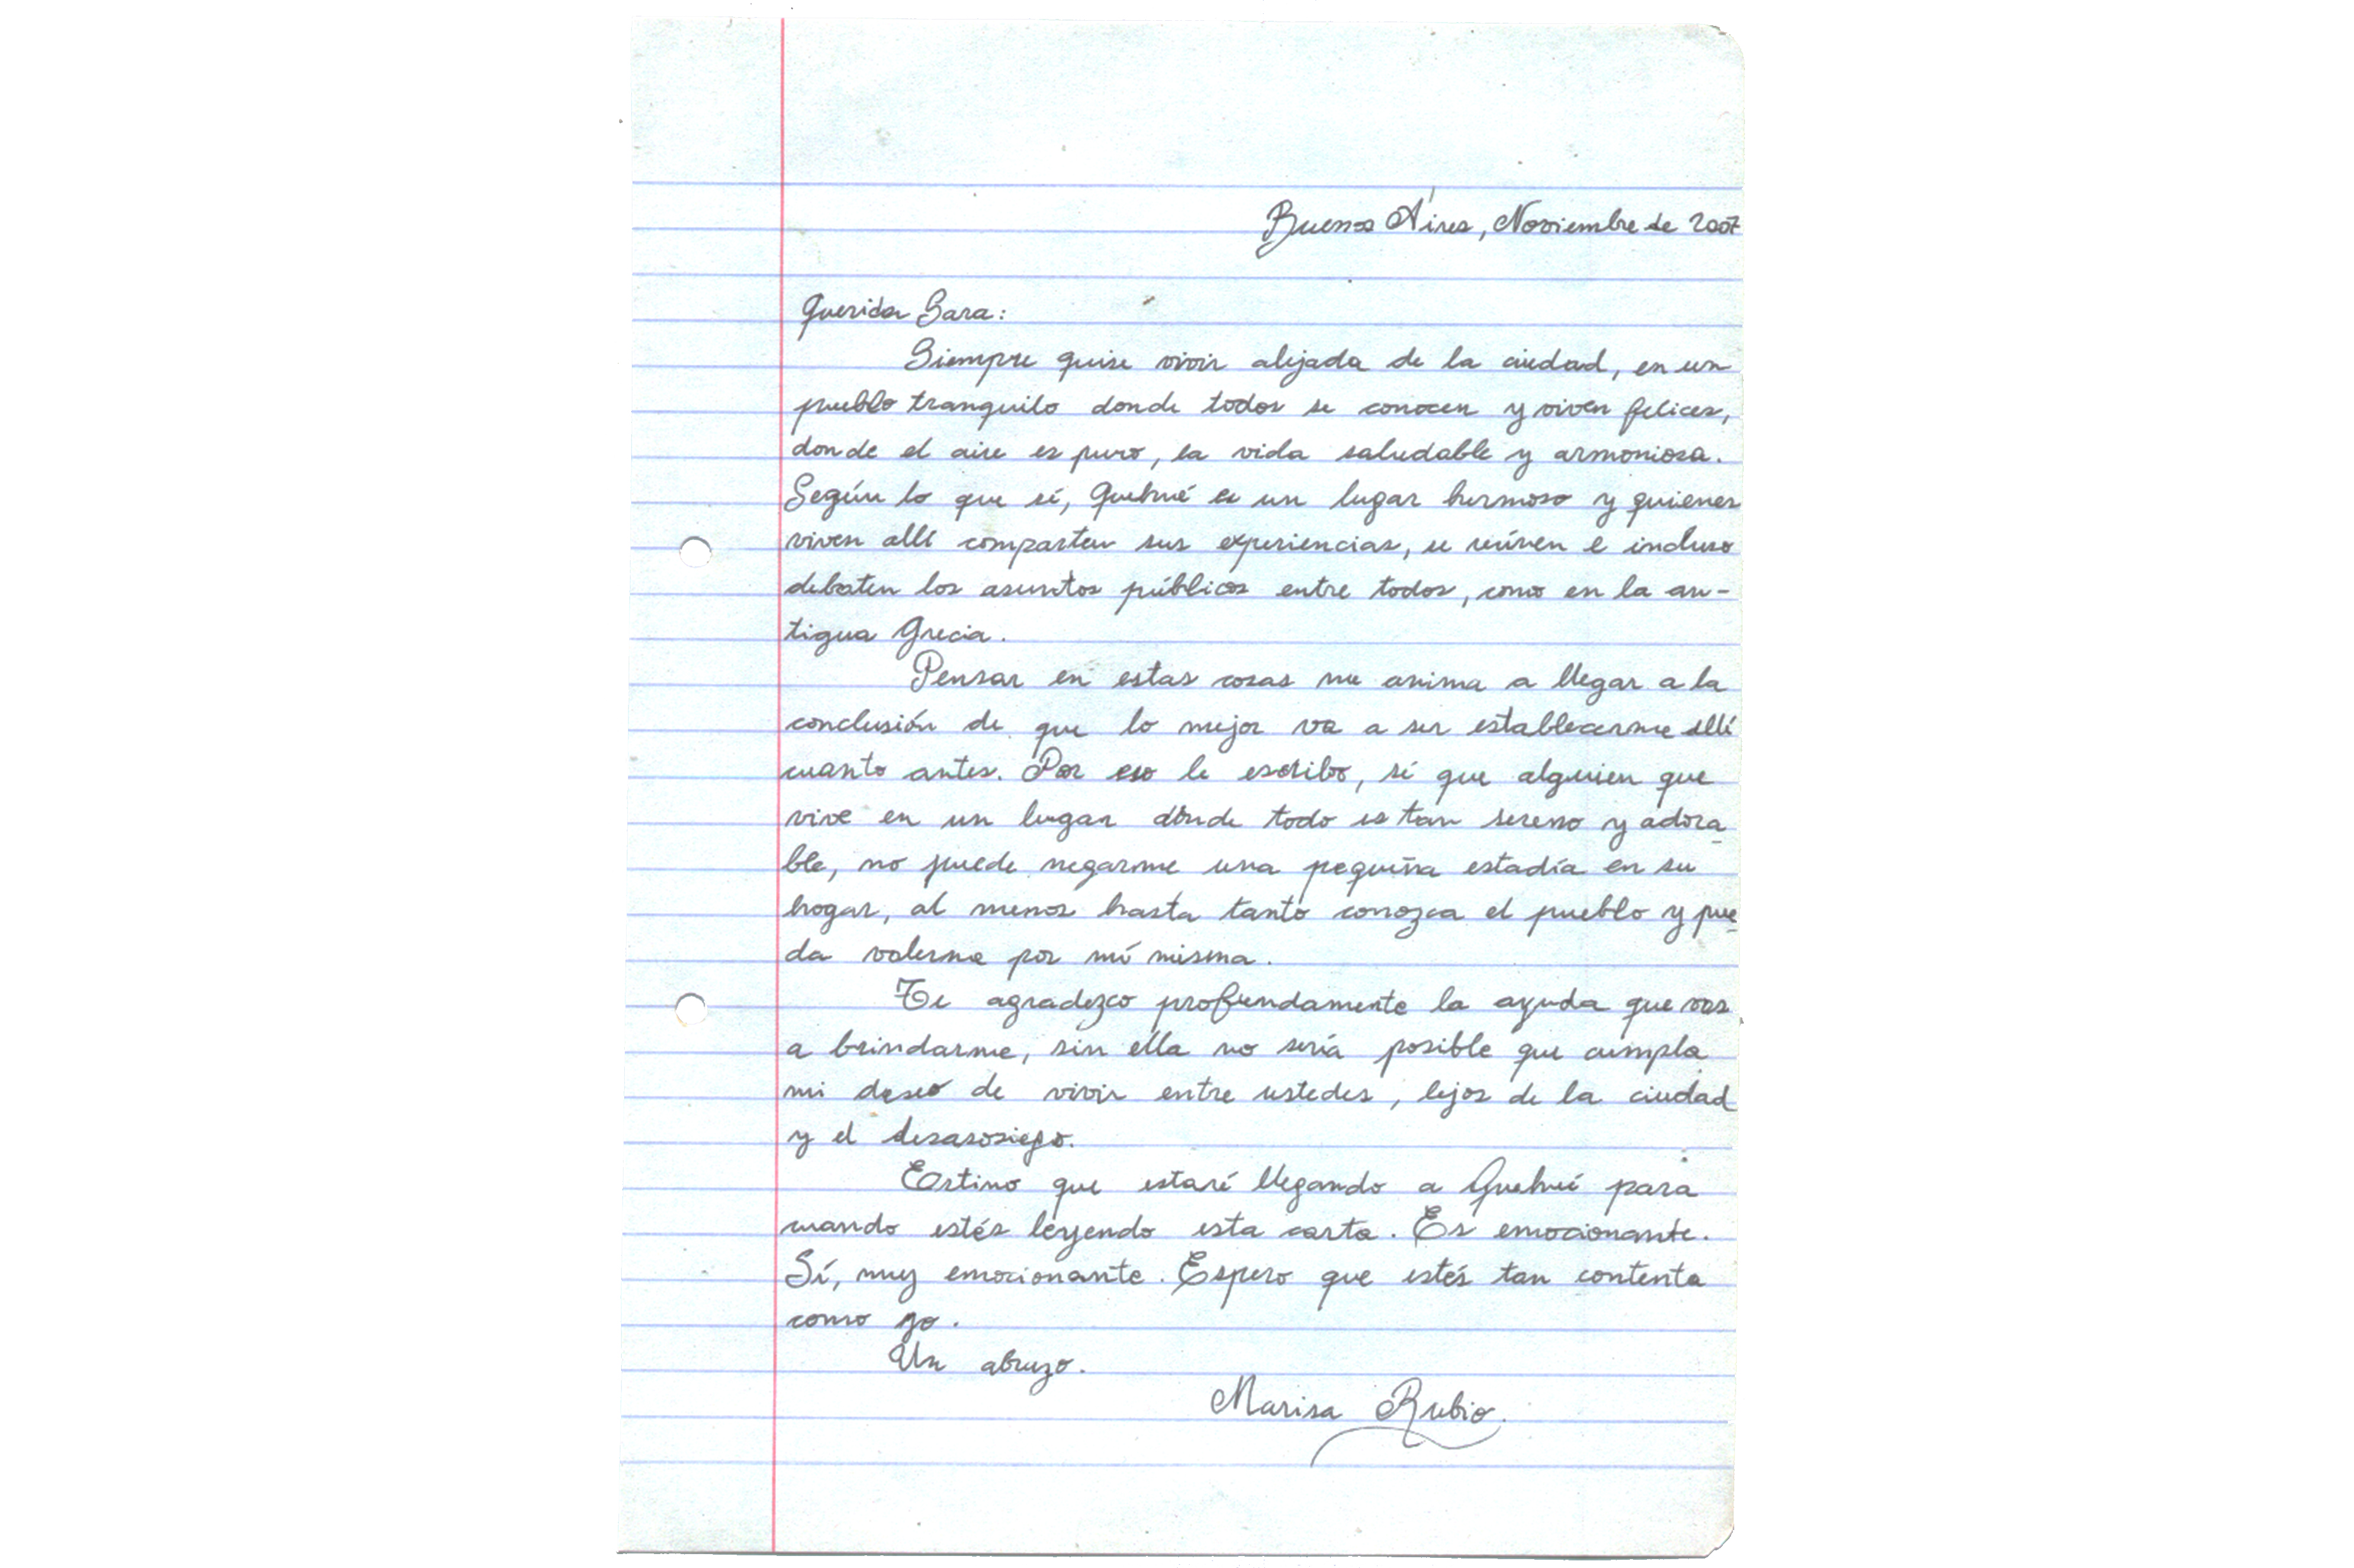 Buenos Aires, Noviembre de 2007
Querida Sara:
Siempre quise vivir alejada de la ciudad, en un
pueblo tranquilo donde todos se conocen y viven felices,
donde el aire es puro, la vida saludable y armoniosa.
Según lo que sé, Quehué es un lugar hermoso y quienes
viven allí comparten sus experiencias, se reúnen e incluso
debaten los asuntos públicos entre todos, como en la an-
tigua Grecia.
Pensar en estas cosas me anima a llegar a la
conclusión de que lo mejor va a ser establecerme allí
cuanto antes. Por eso le escribo, sé que alguien que
vive en un lugar donde todo es tan sereno y adora
ble, no puede negarme una pequeña estadía en su
hogar, al menos hasta tanto conozca el pueblo y pue
da valerme por mí misma.
Te agradezco profundamente la ayuda que vas
a brindarme, sin ella no sería posible que cumpla
mi deseo de vivir entre ustedes, lejos de la ciudad
y el desasosiego.
Estimo que estaré llegando a Quehué para
cuando estés leyendo esta carta. Es emocionante.
Sí, muy emocionante. Espero que estés tan contenta
como yo.
Un abrazo.
Marisa Rubio.